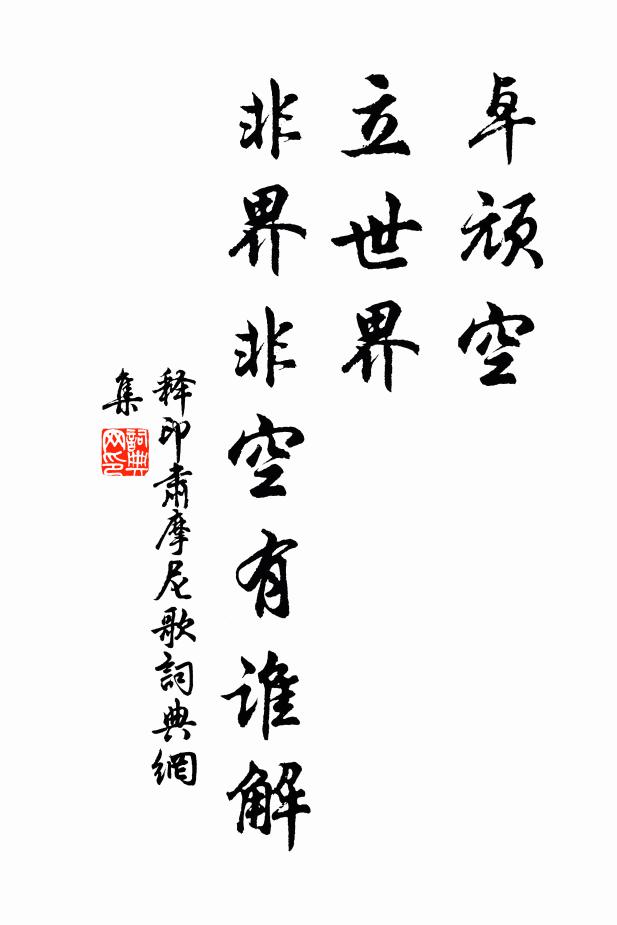 卓顽空
立世界
非界非空有谁解
释印肃摩尼歌詞典網
集
詞典
网印